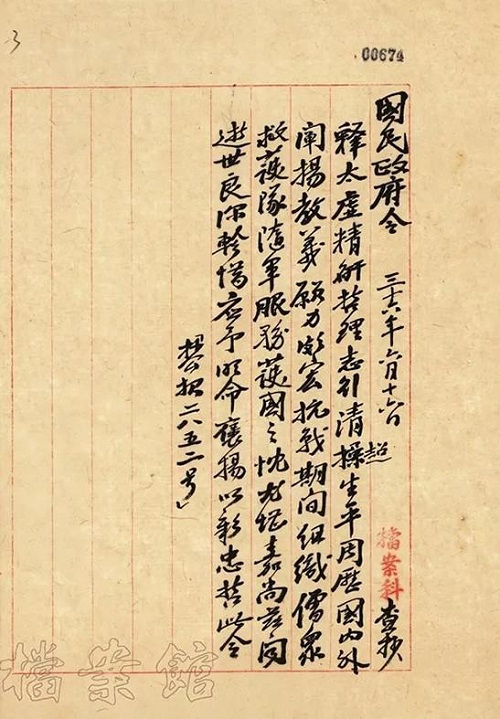 3
00674
國民政府令 三十六年六月十六日 檔案科查抄
釋太虛精研哲理志行清操生平周歷國內外
超
闡揚教義願力頗宏抗戰期間組織僧眾
救護隊隨軍服務護國之忱尤堪嘉尚茲聞
逝世良深軫惜應予明令褒揚以彰忠哲此令
報二八五二号」
檔案館